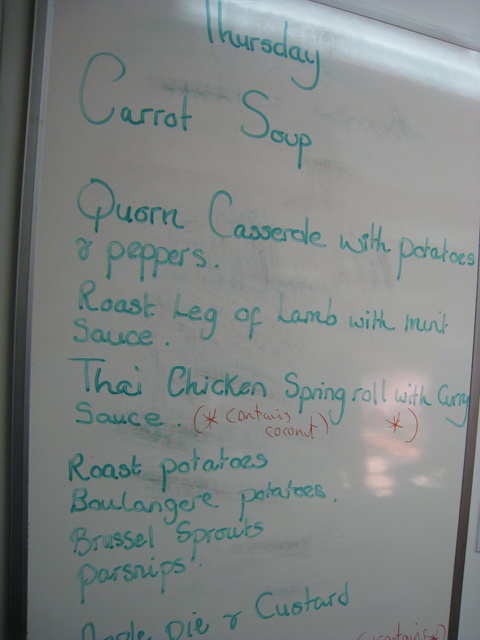 Thursday
Carrot Soup
Quorn Casserole with potatoes
& peppers.
Roast Leg of Lamb with mint
Sauce.
Thai Chicken Spring roll with Curry
Sauce. (* contains coconut) *)
Roast potatoes
Boulangere potatoes.
Brussel Sprouts
parsnips.
Apple Pie & Custard
(contains *)